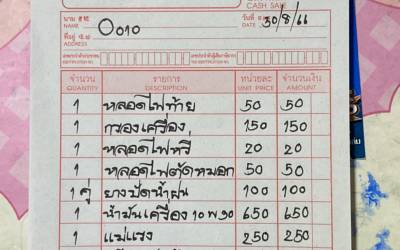 CASH SALE
นาม NAME O๐1๐ วันที่ DATE 30/8/66
ที่อยู่ ADDRESS
จำนวน รายการ หน่วยละ จำนวนเงิน
QUANTITY DESCRIPTION UNIT PRICE AMOUNT
1 หลอดไฟท้าย 50 50
1 กรองเครื่อง 150 150
1 หลอดไฟหรี่ 20 20
1 หลอดไฟตัดหมอก 50 50
1 คู่ ยางปัดน้ำฝน 100 100
1 น้ำมันเครื่อง 650 650
1 แม่แรง 250 250